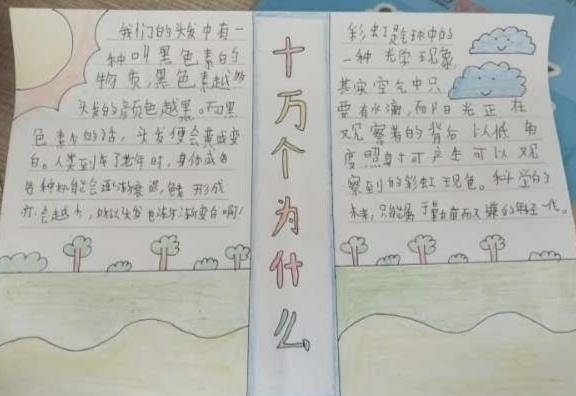 我们的头发中有一
种叫黑色素的
物质,黑色素越多
头发的颜色越黑。而黑
色素少的话,头发便会黄或变
白。人类到了老年时,身体的各
各种机能会逐渐衰退,
形成
会越少,所以头发也渐渐变白啊!
十万个为什么
彩虹是气球中的
一种光学现象,
其实空气中只
要有水滴,而阳光正在
观察者的背后以低角
度照射可产生可以观
察到的彩虹现色。科学的
未来,只能属于勤奋而又谦的年轻一代。